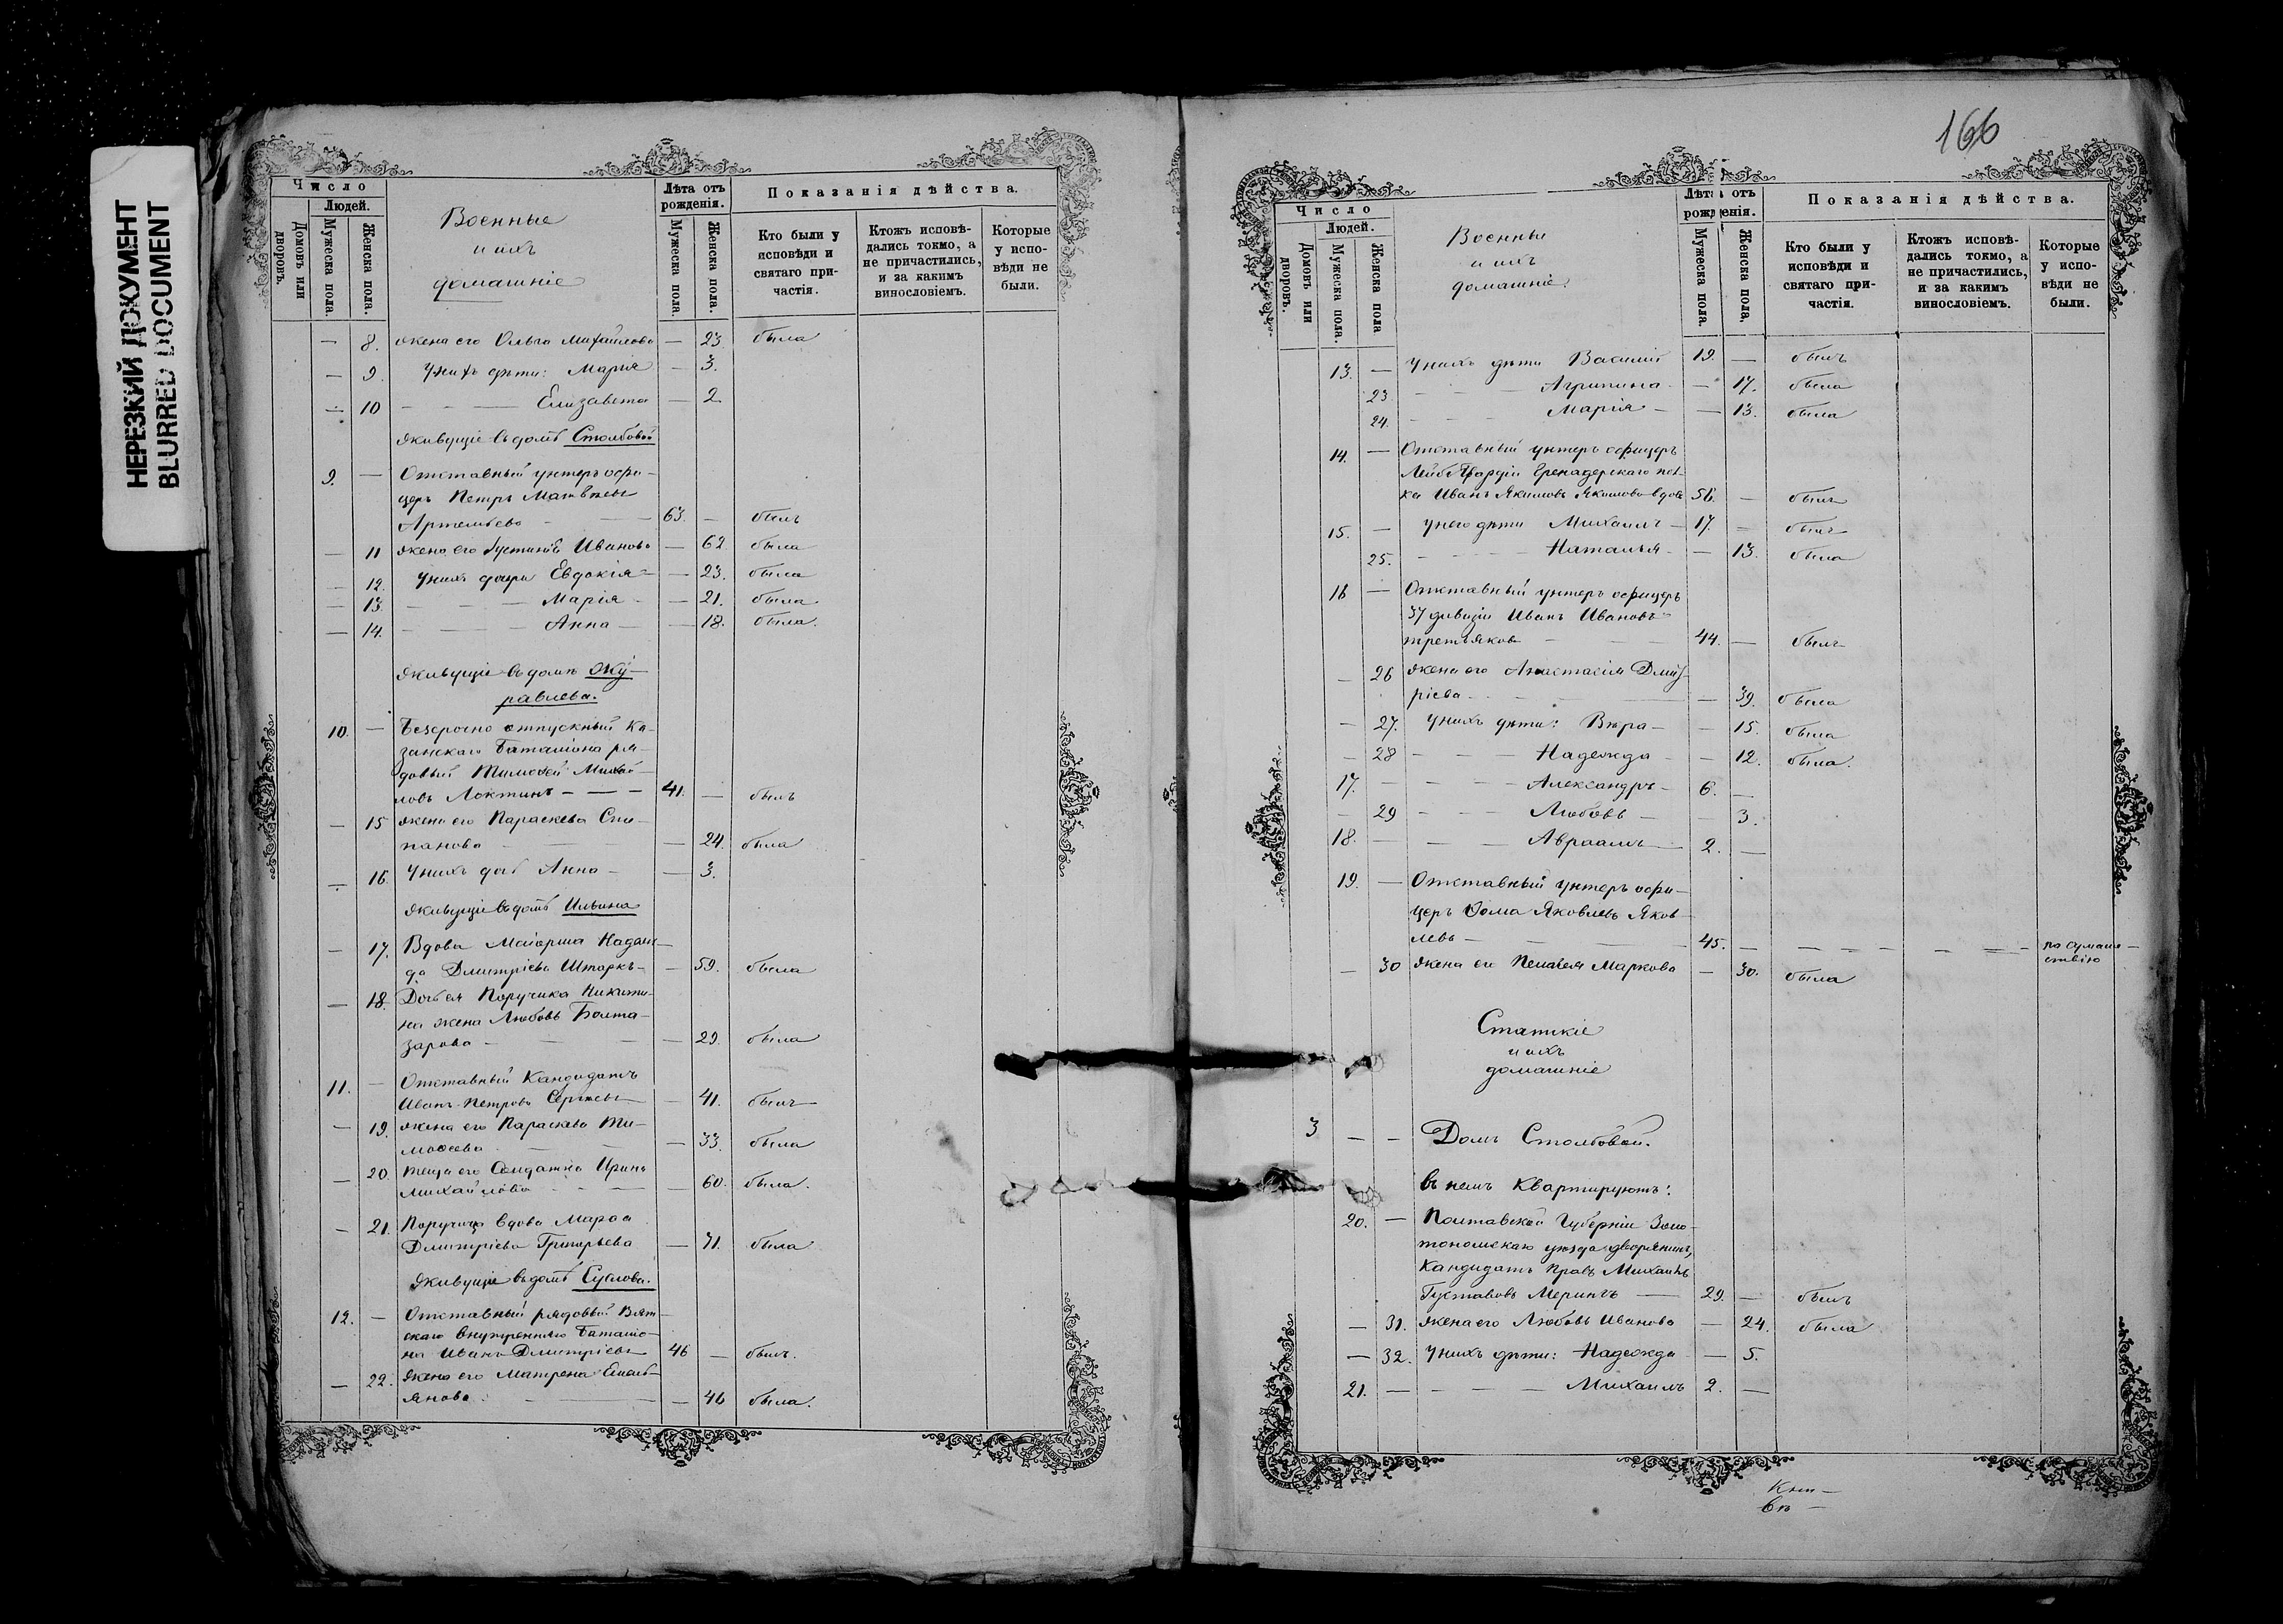 НЕРЕЗКИЙ ДОКУМЕНТ
BLURRED DOCUMENT
Число
Людей.
Домовъ или дворовъ.
Мужеска пола.
Женска пола.
Военные
и ихъ
домашніе
Лѣта отъ рожденія.
Мужеска пола.
Женска пола.
Показанія дѣйства.
Кто были у исповѣди и святаго при-частія.
Ктожъ исповѣ-дались токмо, а не причастились, и за какимъ винословіемъ.
Которые у испо-вѣди не были.
— 8. жена его Ольга Михайлова — 23. была
— 9. У нихъ дѣти: Марія — 3.
— 10 — — Елизавета — 2
Живущіе въ домѣ Столбовой
9. — Отставный унтеръ офи-
церъ Петръ Матвѣевъ
Артемьевъ — 63. — былъ
— 11 жена его Иванова — 62. была
— 12. У нихъ дочери Евдокія — 23. была
— 13. — — — Марія — 21. была
— 14. — — — Анна — 18. была.
Живущіе въ домѣ Жу-
равлева.
10. — Безсрочно отпускный Ка-
занскаго Баталіона ря-
довый Тимоѳей Михай-
ловъ Локтинъ — — — 41. — былъ
— 15 жена его Параскева Сте-
панова — 24. была
— 16. У нихъ дочь Анна — 3.
Живущіе въ домѣ Ильина
— 17. Вдова Маіорша Надеж-
да Дмитріева Штаркъ — 59. была
— 18. Дочь ея Поручика Никити-
на жена Любовь Болта-
зарова — 29. была
11. — Отставный Кандидатъ
Иванъ Петровъ Сергѣевъ — 41. былъ
— 19. жена его Параскева Ти-
моѳеева — 33. была
— 20. теща его Солдатка Ирина
Михайлова — 60. была.
— 21. Поручица вдова Марѳа
Дмитріева Григорьева — 71. была
Живущіе въ домѣ Суслова.
12. — Отставный рядовый Вят-
скаго внутренняго Баталіо-
на Иванъ Дмитріевъ 46 — былъ.
— 22. жена его Матрена Емель-
янова — 46 была.
166
Число
Людей.
Домовъ или дворовъ.
Мужеска пола
Женска пола
Военные
и ихъ
домашніе
Лѣта отъ рожденія.
Мужеска пола.
Женска пола.
Показанія дѣйства.
Кто были у исповѣди и святаго при-частія.
Ктожъ исповѣ-дались токмо, а не причастились, и за какимъ винословіемъ.
Которые у испо-вѣди не были.
13. — У нихъ дѣти Василій 19. — былъ
23 — — Агрипина — 17. была
24. — — Марія — 13. была
14. — Отставный унтеръ офицеръ
Лейбъ Гвардіи Гренадерскаго пол-
ка Иванъ Якимовъ Якимовъ вдовъ 56. — былъ
15. — У него дѣти Михаилъ — 17. — былъ
25. — — Наталья — 13. была
16 — Отставный унтеръ офицеръ
37 дивизіи Иванъ Ивановъ
Третьяковъ 44. — былъ
— 26 жена его Анастасія Дмит-
ріева — 39. была
— 27. У нихъ дѣти: Вѣра — 15. была
— 28 — — Надежда — 12. была.
17. — — — Александръ — 6. —
— 29 — — Любовь — 3.
18. — — — Авраамъ 2. —
19. — Отставный унтеръ офи-
церъ Ѳома Яковлевъ Яков-
левъ — 45. — — — —
— 30 жена его Пелагея Маркова — 30. была
Статскіе
и ихъ
домашніе
3 — — Домъ Столбовой.
въ немъ Квартируютъ:
20. — Полтавской Губерніи Золо-
тоношскаго уѣзда дворянинъ,
Кандидатъ правъ Михаилъ
Густавовъ Мерингъ — 29. — былъ
— 31. жена его Любовь Иванова — 24. была
— 32. У нихъ дѣти: Надежда — 5.
21. — — — Михаилъ 2. —